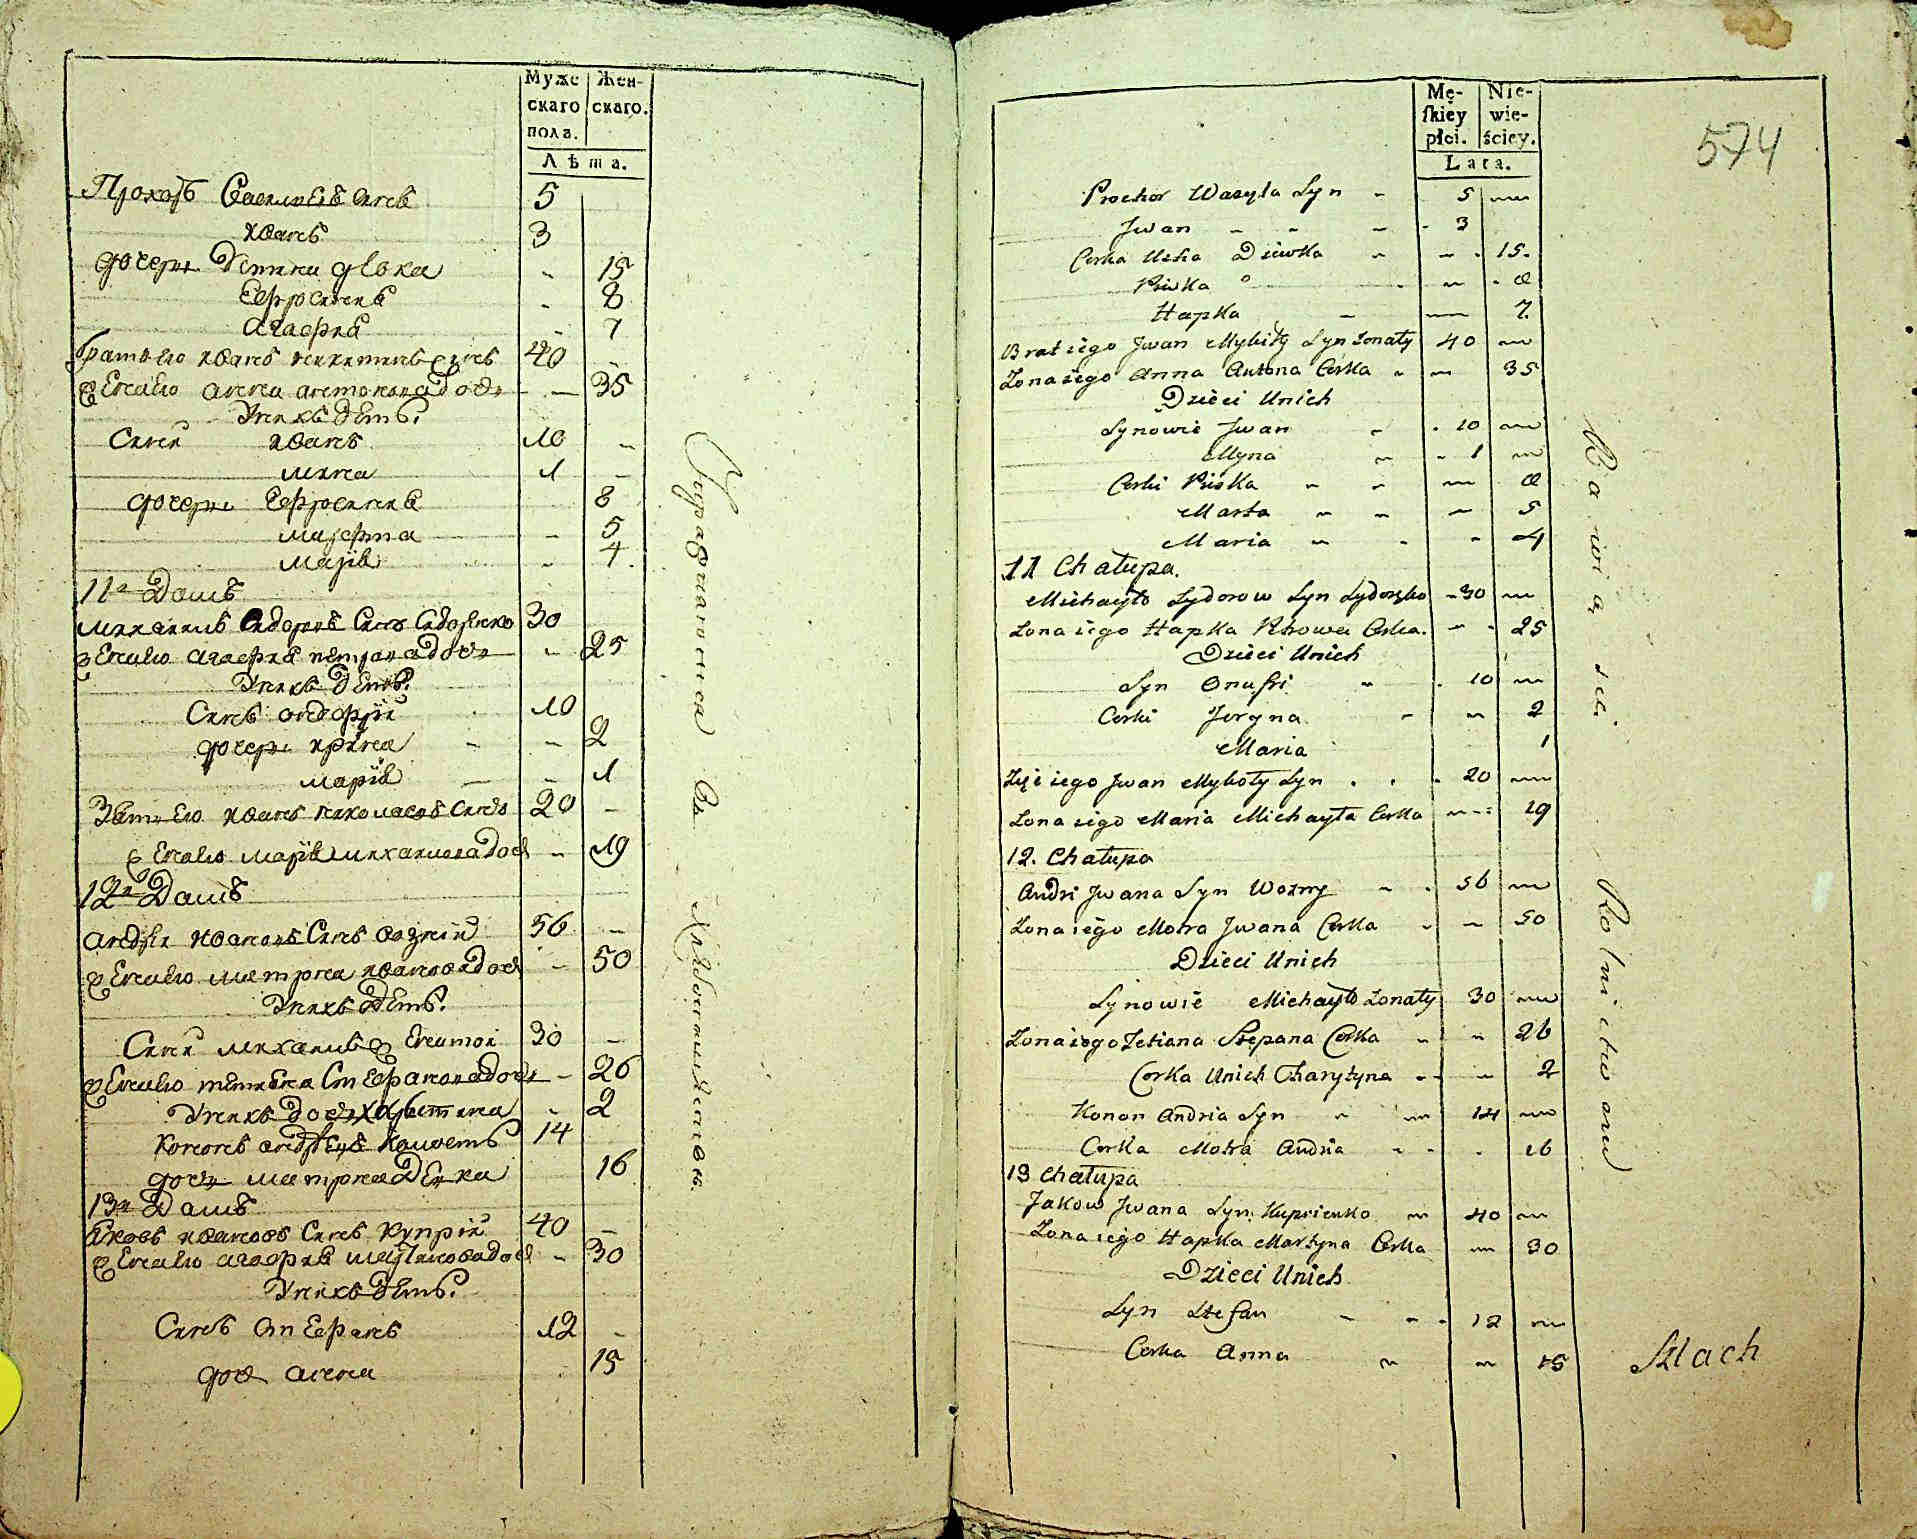 Муже
скаго
пола.
Жен-
скаго.
Лѣта.
Прохоръ Василиевъ синъ 5
иванъ 3
дочери Устина дѣвка - 15
Еефросиния - 8
агафия - 7
братъ Его иванъ никитинъ синъ 40 -
жена Его анна антонова дочь - 35
У нихъ дети:
Сини иванъ 10 -
мина 1 -
дочери Еефросиния 8
марфта - 5
марія - 4
11й Домъ
михаилъ Сидоровъ Синъ Сидоренко 30
жена Его агафия петрова дочь - 25
У нихъ дети:
Синъ онофрій 10
дочери ирина - - 2
марія - - 1
Зять Его иванъ николаевъ синъ 20 -
жена Его марія михаилова дочь - 19
12й Домъ
андрей ивановъ Синъ возний 56 -
жена Его матрона иванова дочь - 50
У нихъ дети:
Сини михаилъ женатой 30 -
жена Его татияна Стефанова дочь - 26
У нихъ дочь харитина - 2
кононъ андреевъ 14
дочь матрона Девка 16
13й Домъ
Яковъ ивановъ Синъ куприй 40 -
жена Его агафия мартинова дочь - 30
У нихъ дети:
Синъ Стефанъ 12 -
дочь анна 15
Упражняются въ Хлебопашестве.
574
Mę-
skiey
płci.
Nie-
wie-
ściey.
Lata.
Prochor Wasyla Syn - - 5
Jwan - - - 3
Corka Usha Dziewka - - - 15.
Priska - 8
Hapka - 7.
Brat iego Jwan Mykity Syn Zonaty 40
Zona iego Anna Antona Corka - 35
Dzieci Unich
Synowie Jwan - 10
Myna - - 1
Corki Priska - - 8
Marta - - - 5
Maria - - - 4
11 Chałupa.
Michayło Sydorow Syn Sydorenko - 30
Zona iego Hapka Petrowa Corka. - - 25
Dzieci Unich
Syn Onufri - - 10
Corki Jrryna - - 2
Maria 1
Zięć iego Jwan Mykoły Syn . . - 20
Zona iego Maria Michayła Corka - - 19
12. Chałupa
Andri Jwana Syn Wozny - - 56
Zona iego Motra Jwana Corka - - 50
Dzieci Unich
Synowie Michayło Zonaty 30
Zona iego Tetiana Stepana Corka - - 26
Corka Unich Charytyna - - 2
Konon Andria Syn - - 14
Corka Motra Andria - - - 16
13 Chałupa
Jakow Jwana Syn Kuprienko - 40
Zona iego Hapka Martyna Corka - 30
Dzieci Unich
Syn Stefan - - - 12
Corka Anna - - 15
Bawią się Rolnictwem
Szlach